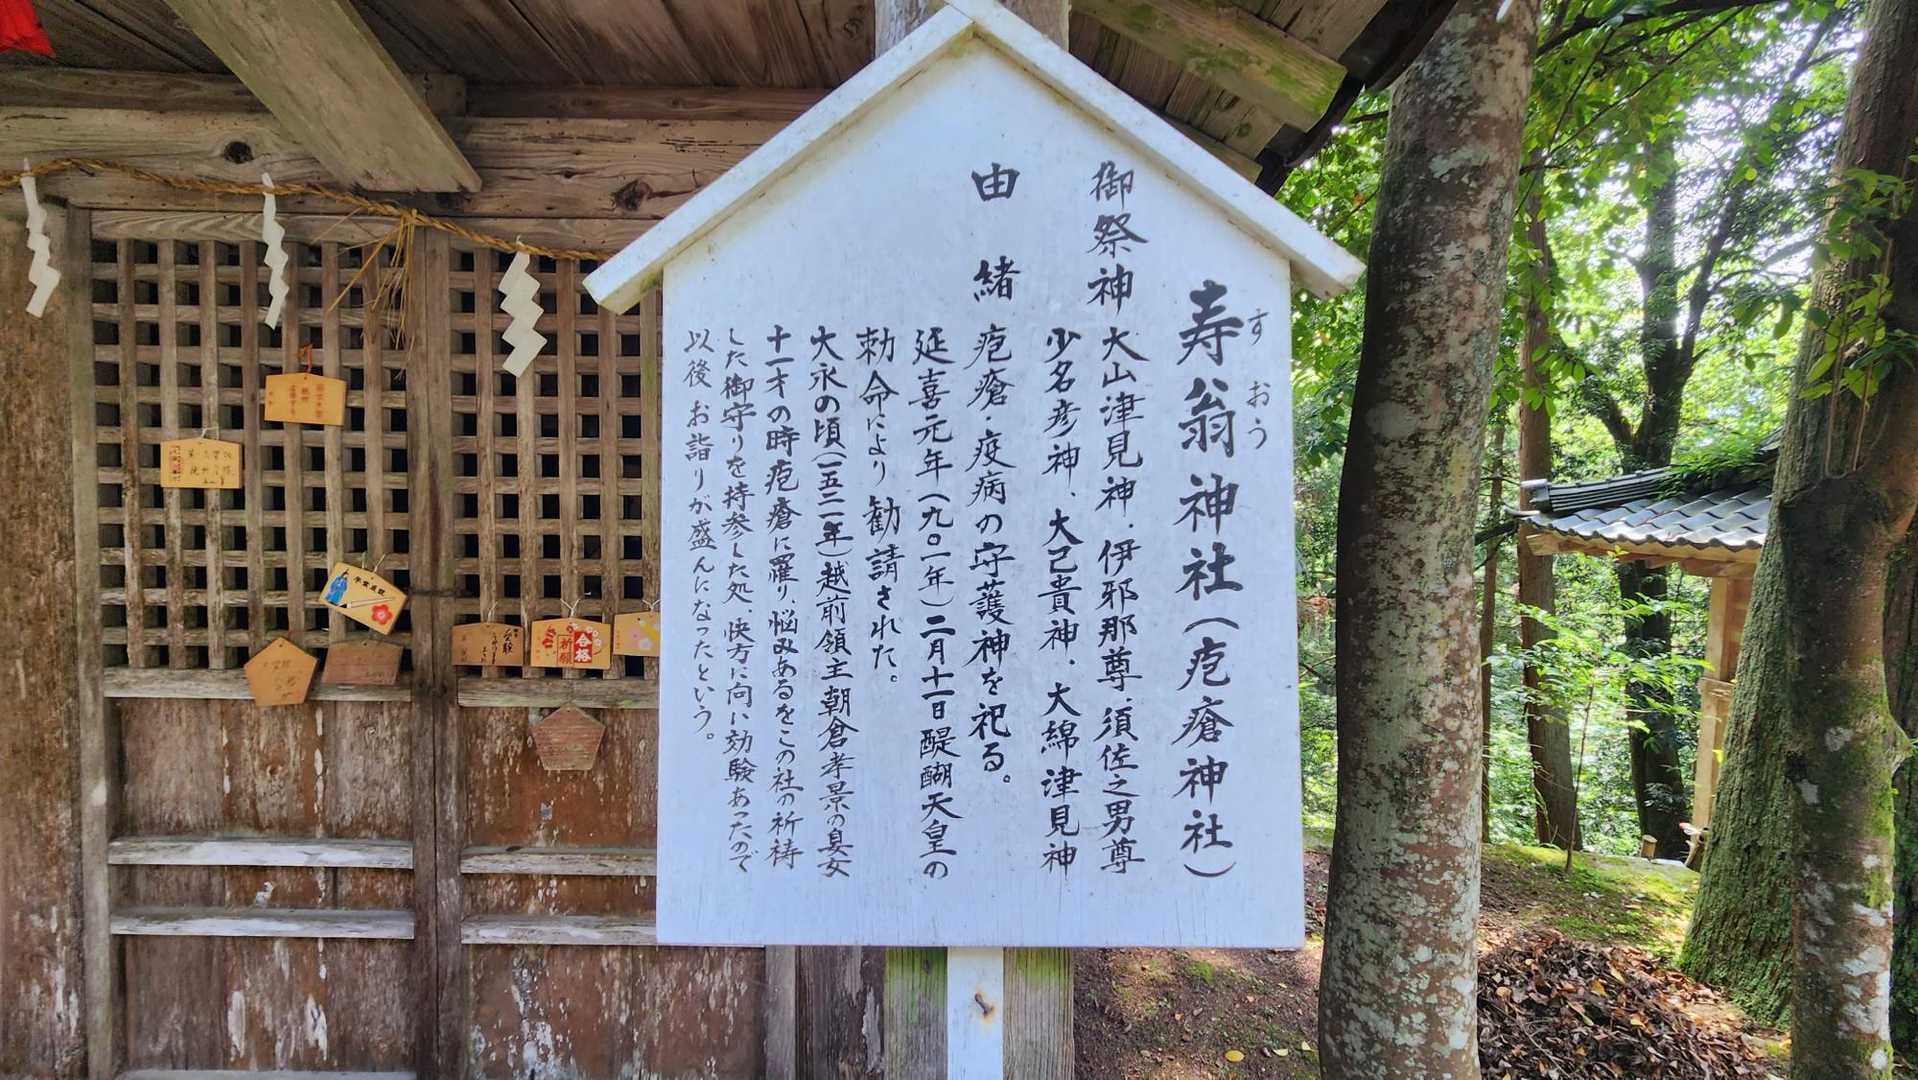 寿翁神社（疱瘡神社）
すおう
御祭神 大山津見神、伊邪那尊、須佐之男尊
少名彦神、大己貴神、大綿津見神
由緒 疱瘡、疫病の守護神を祀る。
延喜元年（九〇一年）二月十一日醍醐天皇の
勅命により勧請された。
大永の頃（一五二一年）越前領主朝倉孝景の息女
十一才の時疱瘡に罹り、悩みあるをこの社の祈祷
した御守りを持参した処、快方に向い効験あったので
以後お詣りが盛んになったという。
合格
祈願